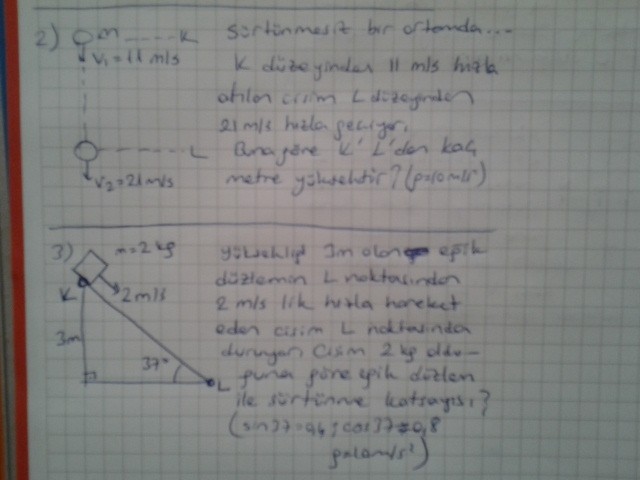 2) m K Sürtünmesiz bir ortamda...
v₁=11 m/s K düzeyinden 11 m/s hızla
atılan cisim L düzeyinden
21 m/s hızla geçiyor.
L Buna göre K' L'den kaç
v₂=21 m/s metre yüksektir? (g=10 m/s²)
3) m=2 kg yüksekliği 3m olan eğik
düzlemin L noktasından
K 2 m/s 2 m/s lik hızla hareket
eden cisim L noktasında
3m duruyor. Cisim 2 kg oldu-
37° L ğuna göre eğik düzlem
ile sürtünme katsayısı?
(sin37=0,4; cos37=0,8
g=10 m/s²)